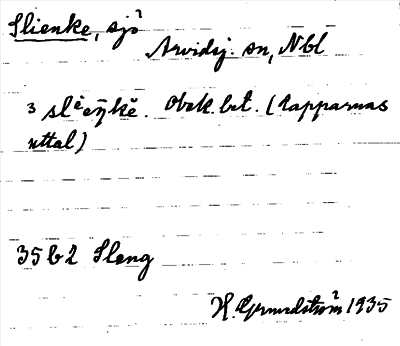 Slienke, sjö
Arvidsj. sn, Nbl
3 slēeŋ̄kĕ. Obek. bet. (Lapparnas
uttal)
35 b 2 Sleng
H. Geijerström 1935